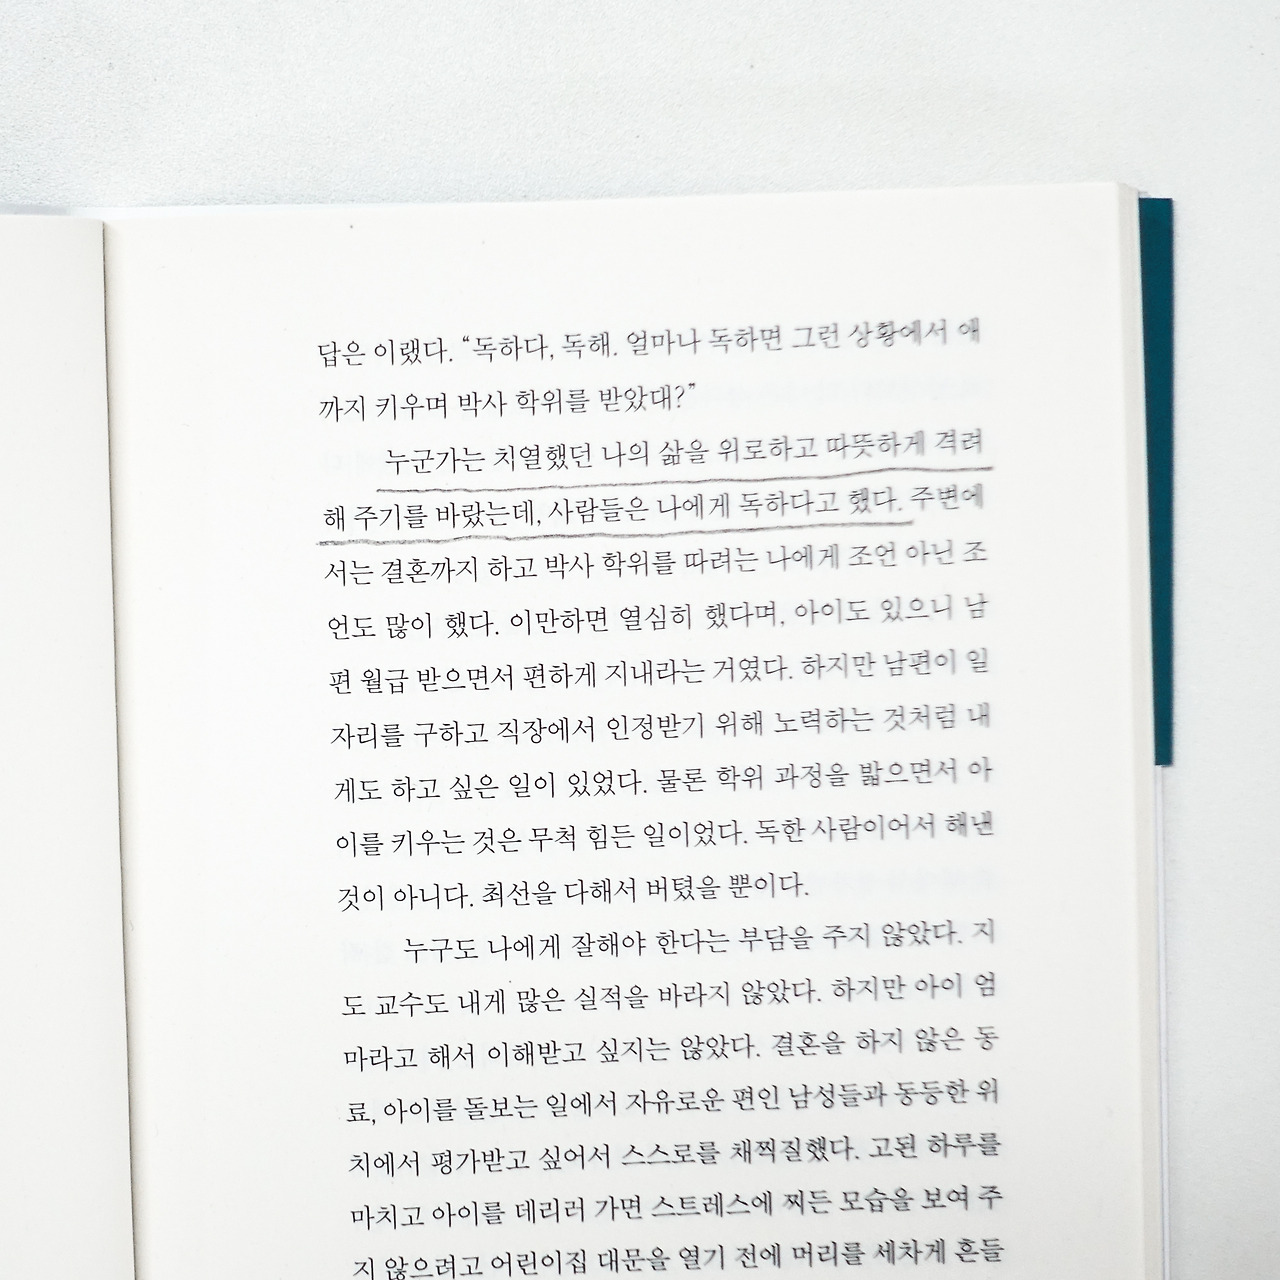 답은 이랬다. “독하다, 독해. 얼마나 독하면 그런 상황에서 애
까지 키우며 박사 학위를 받았대?”
누군가는 치열했던 나의 삶을 위로하고 따뜻하게 격려
해 주기를 바랐는데, 사람들은 나에게 독하다고 했다. 주변에
서는 결혼까지 하고 박사 학위를 따려는 나에게 조언 아닌 조
언도 많이 했다. 이만하면 열심히 했다며, 아이도 있으니 남
편 월급 받으면서 편하게 지내라는 거였다. 하지만 남편이 일
자리를 구하고 직장에서 인정받기 위해 노력하는 것처럼 내
게도 하고 싶은 일이 있었다. 물론 학위 과정을 밟으면서 아
이를 키우는 것은 무척 힘든 일이었다. 독한 사람이어서 해낸
것이 아니다. 최선을 다해서 버텼을 뿐이다.
누구도 나에게 잘해야 한다는 부담을 주지 않았다. 지
도 교수도 내게 많은 실적을 바라지 않았다. 하지만 아이 엄
마라고 해서 이해받고 싶지는 않았다. 결혼을 하지 않은 동
료, 아이를 돌보는 일에서 자유로운 편인 남성들과 동등한 위
치에서 평가받고 싶어서 스스로를 채찍질했다. 고된 하루를
마치고 아이를 데리러 가면 스트레스에 찌든 모습을 보여 주
지 않으려고 어린이집 대문을 열기 전에 머리를 세차게 흔들